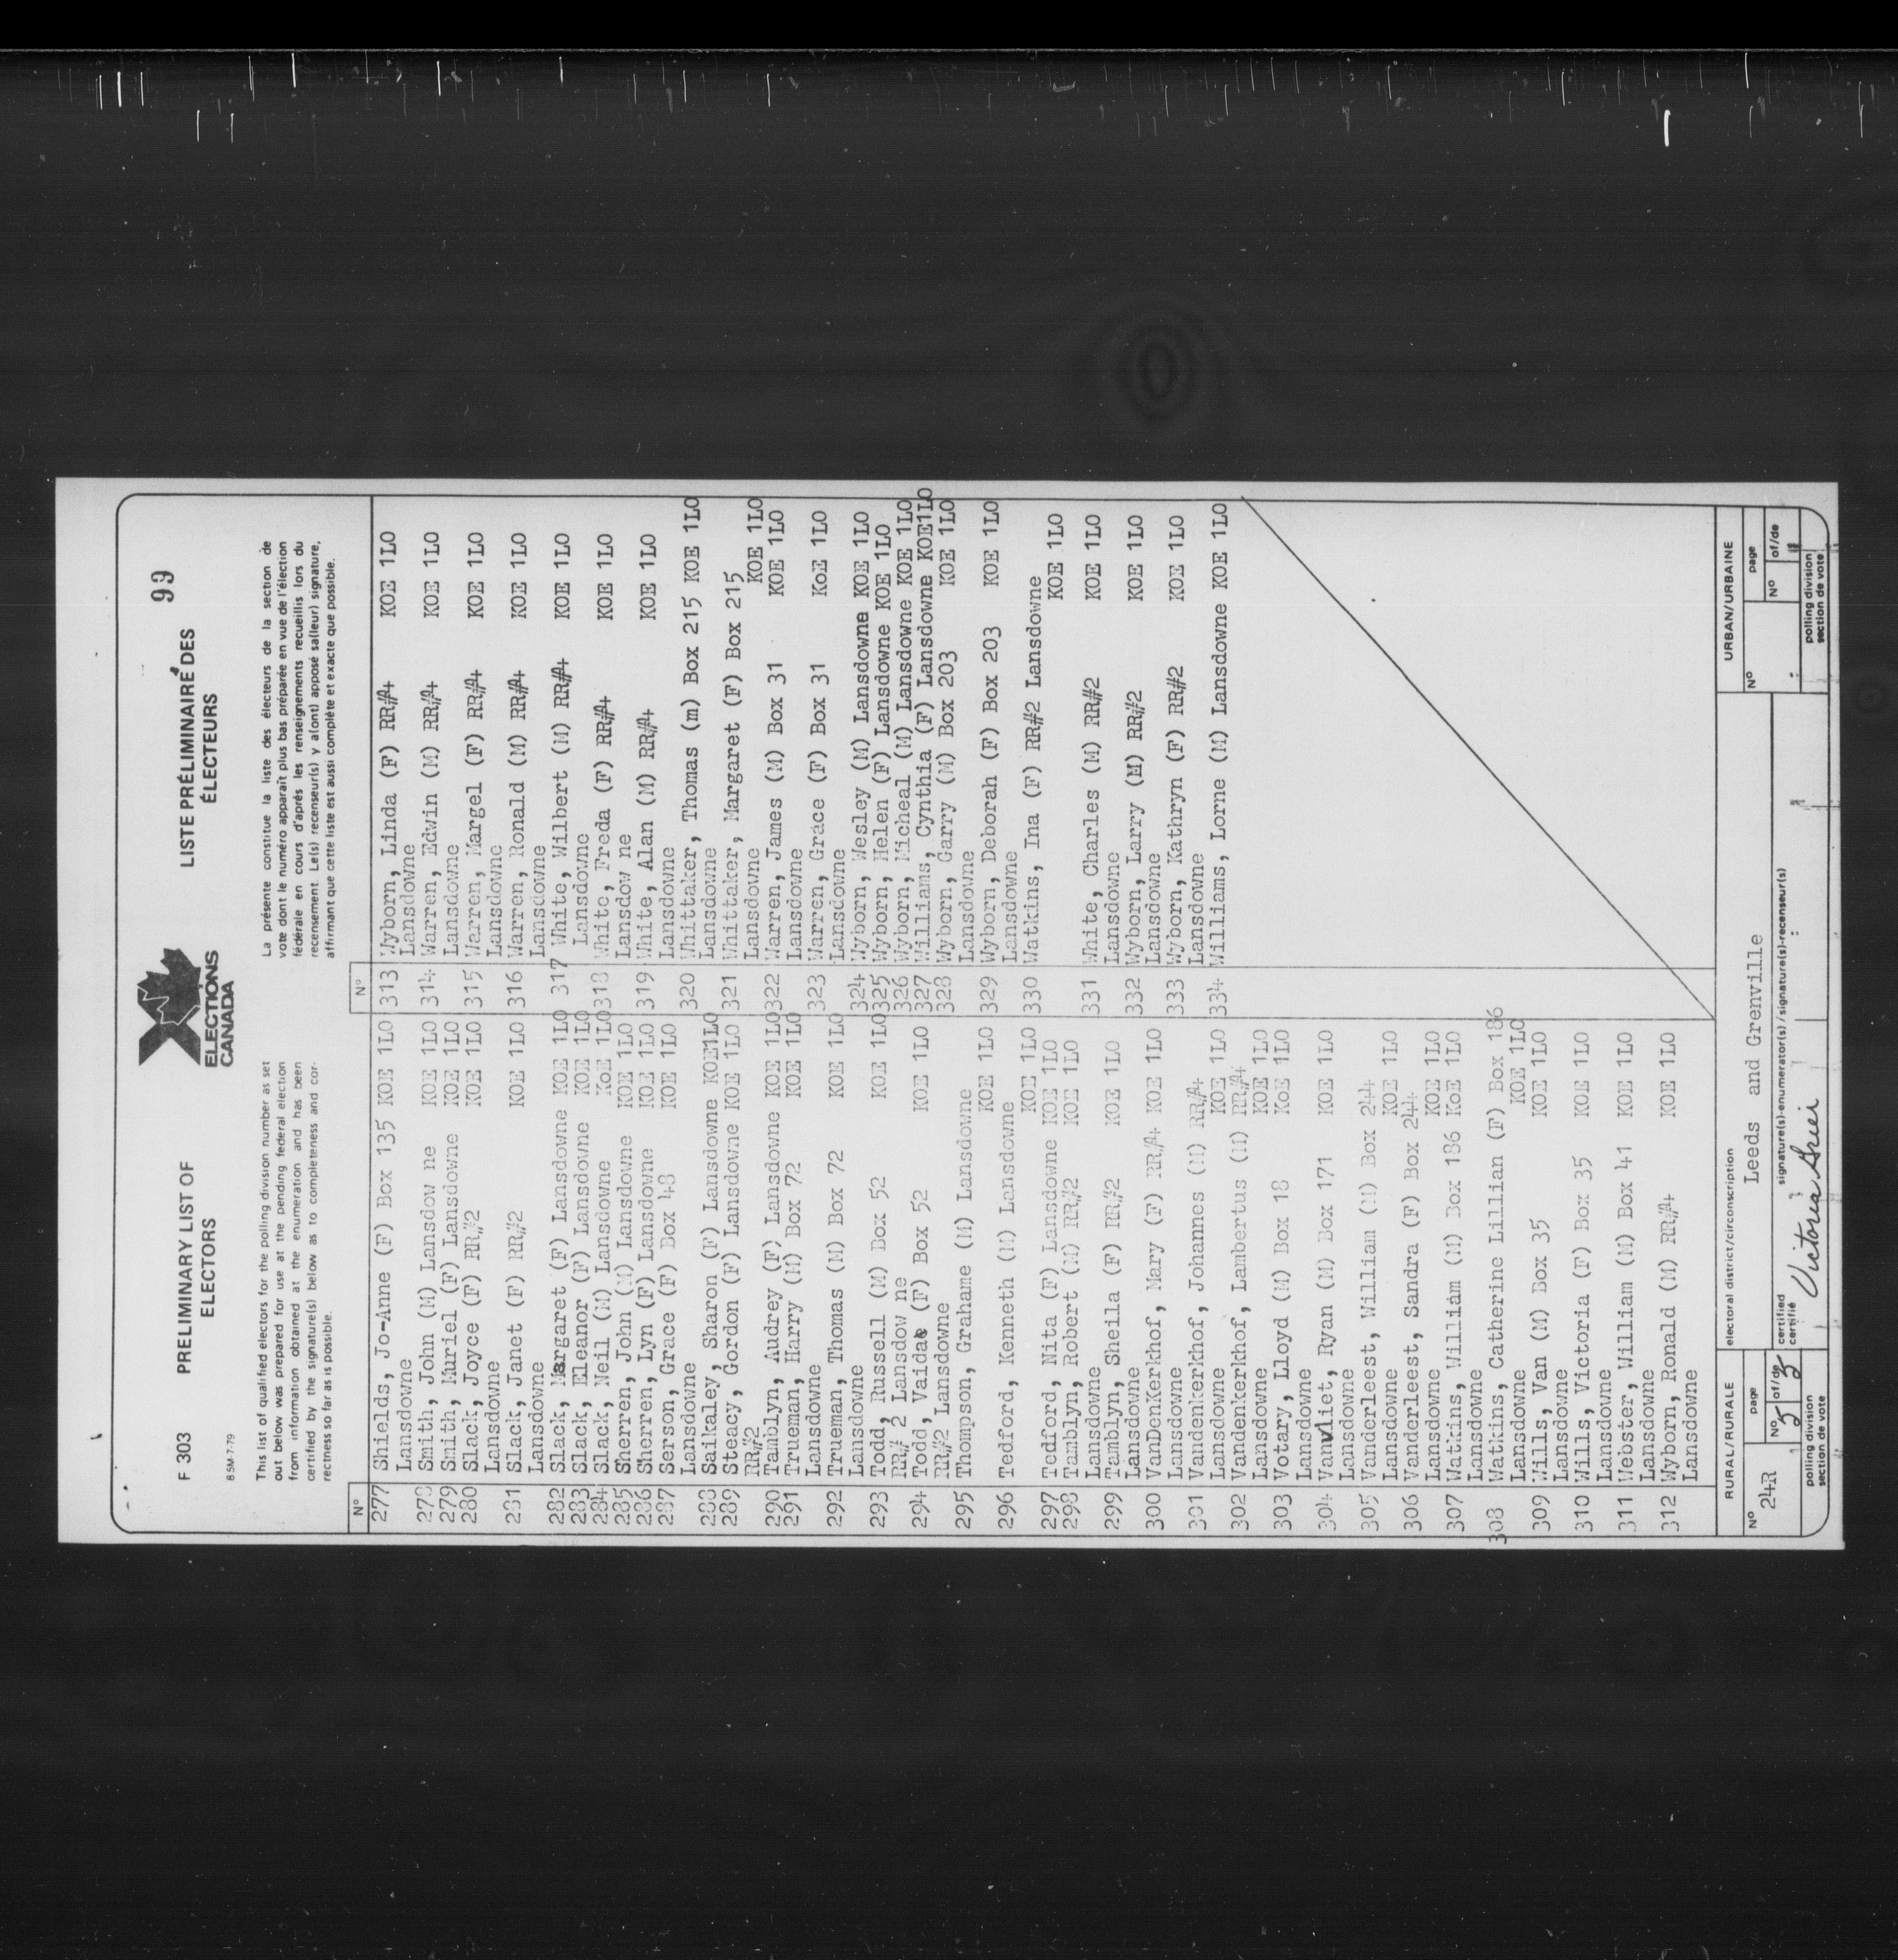 F 303
PRELIMINARY LIST OF
ELECTORS
85M-7-79
ELECTIONS
CANADA
LISTE PRÉLIMINAIRE DES
ÉLECTEURS
99
This list of qualified electors for the polling division number as set
out below was prepared for use at the pending federal election
from information obtained at the enumeration and has been
certified by the signature(s) below as to completeness and cor-
rectness so far as is possible.
La présente constitue la liste des électeurs de la section de
vote dont le numéro apparaît plus bas préparée en vue de l'élection
fédérale en cours d'après les renseignements recueillis lors du
recensement. Le(s) recenseur(s) y a(ont) apposé sa(leur) signature,
affirmant que cette liste est aussi complète et exacte que possible.
Nº
277 Shields, Jo-Anne (F) Box 135 KOE 1LO
Lansdowne
278 Smith, John (M) Lansdow ne KOE 1LO
279 Smith, Muriel (F) Lansdowne KOE 1LO
280 Slack, Joyce (F) RR#2 KOE 1LO
Lansdowne
281 Slack, Janet (F) RR#2 KOE 1LO
Lansdowne
282 Slack, Margaret (F) Lansdowne KOE 1LO
283 Slack, Eleanor (F) Lansdowne KOE 1LO
284 Slack, Neil (M) Lansdowne KoE 1LO
285 Sherren, John (M) Lansdowne KOE 1LO
286 Sherren, Lyn (F) Lansdowne KOE 1LO
287 Serson, Grace (F) Box 48 KOE 1LO
Lansdowne
288 Saikaley, Sharon (F) Lansdowne KOE1LO
289 Steacy, Gordon (F) Lansdowne KOE 1LO
RR#2
290 Tamblyn, Audrey (F) Lansdowne KOE 1LO
291 Trueman, Harry (M) Box 72 KOE 1LO
Lansdowne
292 Trueman, Thomas (M) Box 72 KOE 1LO
Lansdowne
293 Todd, Russell (M) Box 52 KOE 1LO
RR# 2 Lansdow ne
294 Todd, Vaidae (F) Box 52 KOE 1LO
RR#2 Lansdowne
295 Thompson, Grahame (M) Lansdowne
KOE 1LO
296 Tedford, Kenneth (M) Lansdowne
KOE 1LO
297 Tedford, Nita (F) Lansdowne KOE 1LO
298 Tamblyn, Robert (M) RR#2 KOE 1LO
Lansdowne
299 Tamblyn, Sheila (F) RR#2 KOE 1LO
Lansdowne
300 VanDenKerkhof, Mary (F) RR#4 KOE 1LO
Lansdowne
301 Vandenkerkhof, Johannes (M) RR#4
Lansdowne KOE 1LO
302 Vandenkerkhof, Lambertus (M) RR#4
Lansdowne KOE 1LO
303 Votary, Lloyd (M) Box 18 KoE 1LO
Lansdowne
304 Vanvliet, Ryan (M) Box 171 KOE 1LO
Lansdowne
305 Vandarleest, William (M) Box 244
Lansdowne KOE 1LO
306 Vanderleest, Sandra (F) Box 244
Lansdowne KOE 1LO
307 Watkins, William (M) Box 186 KoE 1LO
Lansdowne
308 Watkins, Catherine Lillian (F) Box 186
Lansdowne KOE 1LO
309 Wills, Van (M) Box 35 KOE 1LO
Lansdowne
310 Wills, Victoria (F) Box 35 KOE 1LO
Lansdowne
311 Webster, William (M) Box 41 KOE 1LO
Lansdowne
312 Wyborn, Ronald (M) RR#4 KOE 1LO
Lansdowne
Nº
313 Wyborn, Linda (F) RR#4 KOE 1LO
Lansdowne
314 Warren, Edwin (M) RR#4 KOE 1LO
Lansdowne
315 Warren, Margel (F) RR#4 KOE 1LO
Lansdowne
316 Warren, Ronald (M) RR#4 KOE 1LO
Lansdowne
317 White, Wilbert (M) RR#4 KOE 1LO
Lansdowne
318 White, Freda (F) RR#4 KOE 1LO
Lansdow ne
319 White, Alan (M) RR#4 KOE 1LO
Lansdowne
320 Whittaker, Thomas (m) Box 215 KOE 1LO
Lansdowne
321 Whittaker, Margaret (F) Box 215
Lansdowne KOE 1LO
322 Warren, James (M) Box 31 KOE 1LO
Lansdowne
323 Warren, Grace (F) Box 31 KoE 1LO
Lansdowne
324 Wyborn, Wesley (M) Lansdowne KOE 1LO
325 Wyborn, Helen (F) Lansdowne KOE 1LO
326 Wyborn, Micheal (M) Lansdowne KOE 1LO
327 Williams, Cynthia (F) Lansdowne KOE1LO
328 Wyborn, Garry (M) Box 203 KOE 1LO
Lansdowne
329 Wyborn, Deborah (F) Box 203 KOE 1LO
Lansdowne
330 Watkins, Ina (F) RR#2 Lansdowne
KOE 1LO
331 White, Charles (M) RR#2 KOE 1LO
Lansdowne
332 Wyborn, Larry (M) RR#2 KOE 1LO
Lansdowne
333 Wyborn, Kathryn (F) RR#2 KOE 1LO
Lansdowne
334 Williams, Lorne (M) Lansdowne KOE 1LO
RURAL/RURALE
Nº
24R
page
Nº 5 of/de 5
polling division
section de vote
electoral district/circonscription
Leeds and Grenville
certified
certifié
signature(s)-enumerator(s) / signature(s)-recenseur(s)
Victoria Grier
URBAN/URBAINE
Nº
page
Nº of/de
polling division
section de vote